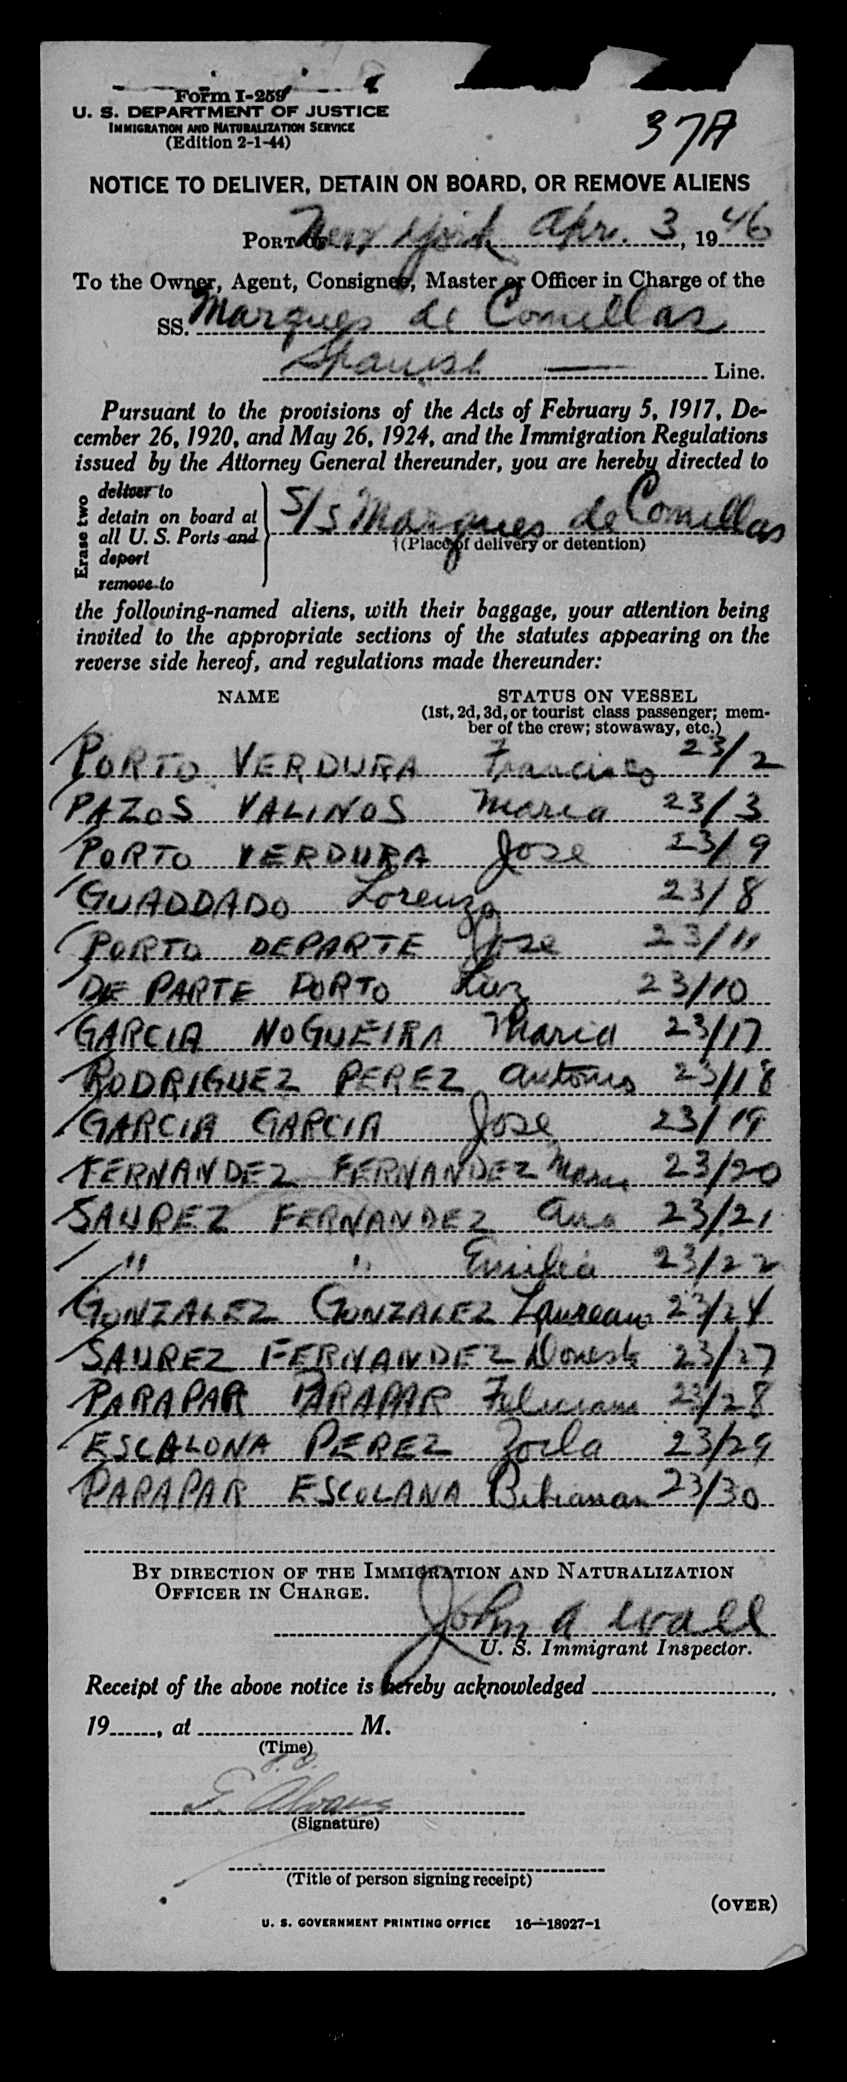 Form I-259
U. S. DEPARTMENT OF JUSTICE
IMMIGRATION AND NATURALIZATION SERVICE
(Edition 2-1-44)
37A
NOTICE TO DELIVER, DETAIN ON BOARD, OR REMOVE ALIENS
PORT OF New York Apr. 3, 1946
To the Owner, Agent, Consignee, Master or Officer in Charge of the
SS. Marques de Comillas
Spanish Line.
Pursuant to the provisions of the Acts of February 5, 1917, De-
cember 26, 1920, and May 26, 1924, and the Immigration Regulations
issued by the Attorney General thereunder, you are hereby directed to
Erase two
deliver to
detain on board at
all U. S. Ports and
deport
remove to
S/S Marques de Comillas
(Place of delivery or detention)
the following-named aliens, with their baggage, your attention being
invited to the appropriate sections of the statutes appearing on the
reverse side hereof, and regulations made thereunder:
NAME STATUS ON VESSEL
(1st, 2d, 3d, or tourist class passenger; mem-
ber of the crew; stowaway, etc.)
PORTO VERDURA Francisco 23/2
PAZOS VALINOS Maria 23/3
PORTO VERDURA Jose 23/9
GUADDADO Lorenzo 23/8
PORTO DEPARTE Jose 23/11
DE PARTE PORTO Luz 23/10
GARCIA NOGUEIRA Maria 23/17
RODRIGUEZ PEREZ Antonio 23/18
GARCIA GARCIA Jose 23/19
FERNANDEZ FERNANDEZ Maria 23/20
SAUREZ FERNANDEZ Ana 23/21
" " Emilia 23/22
GONZALEZ GONZALEZ Laureano 23/24
SAUREZ FERNANDEZ 23/27
PARAPAR PARAPAR Feliciano 23/28
ESCALONA PEREZ Zoila 23/29
PARAPAR ESCOLANA 23/30
BY DIRECTION OF THE IMMIGRATION AND NATURALIZATION
OFFICER IN CHARGE.
John A Wall
U. S. Immigrant Inspector.
Receipt of the above notice is hereby acknowledged
19 , at M.
(Time)
(Signature)
(Title of person signing receipt)
(OVER)
U. S. GOVERNMENT PRINTING OFFICE 16—18927-1